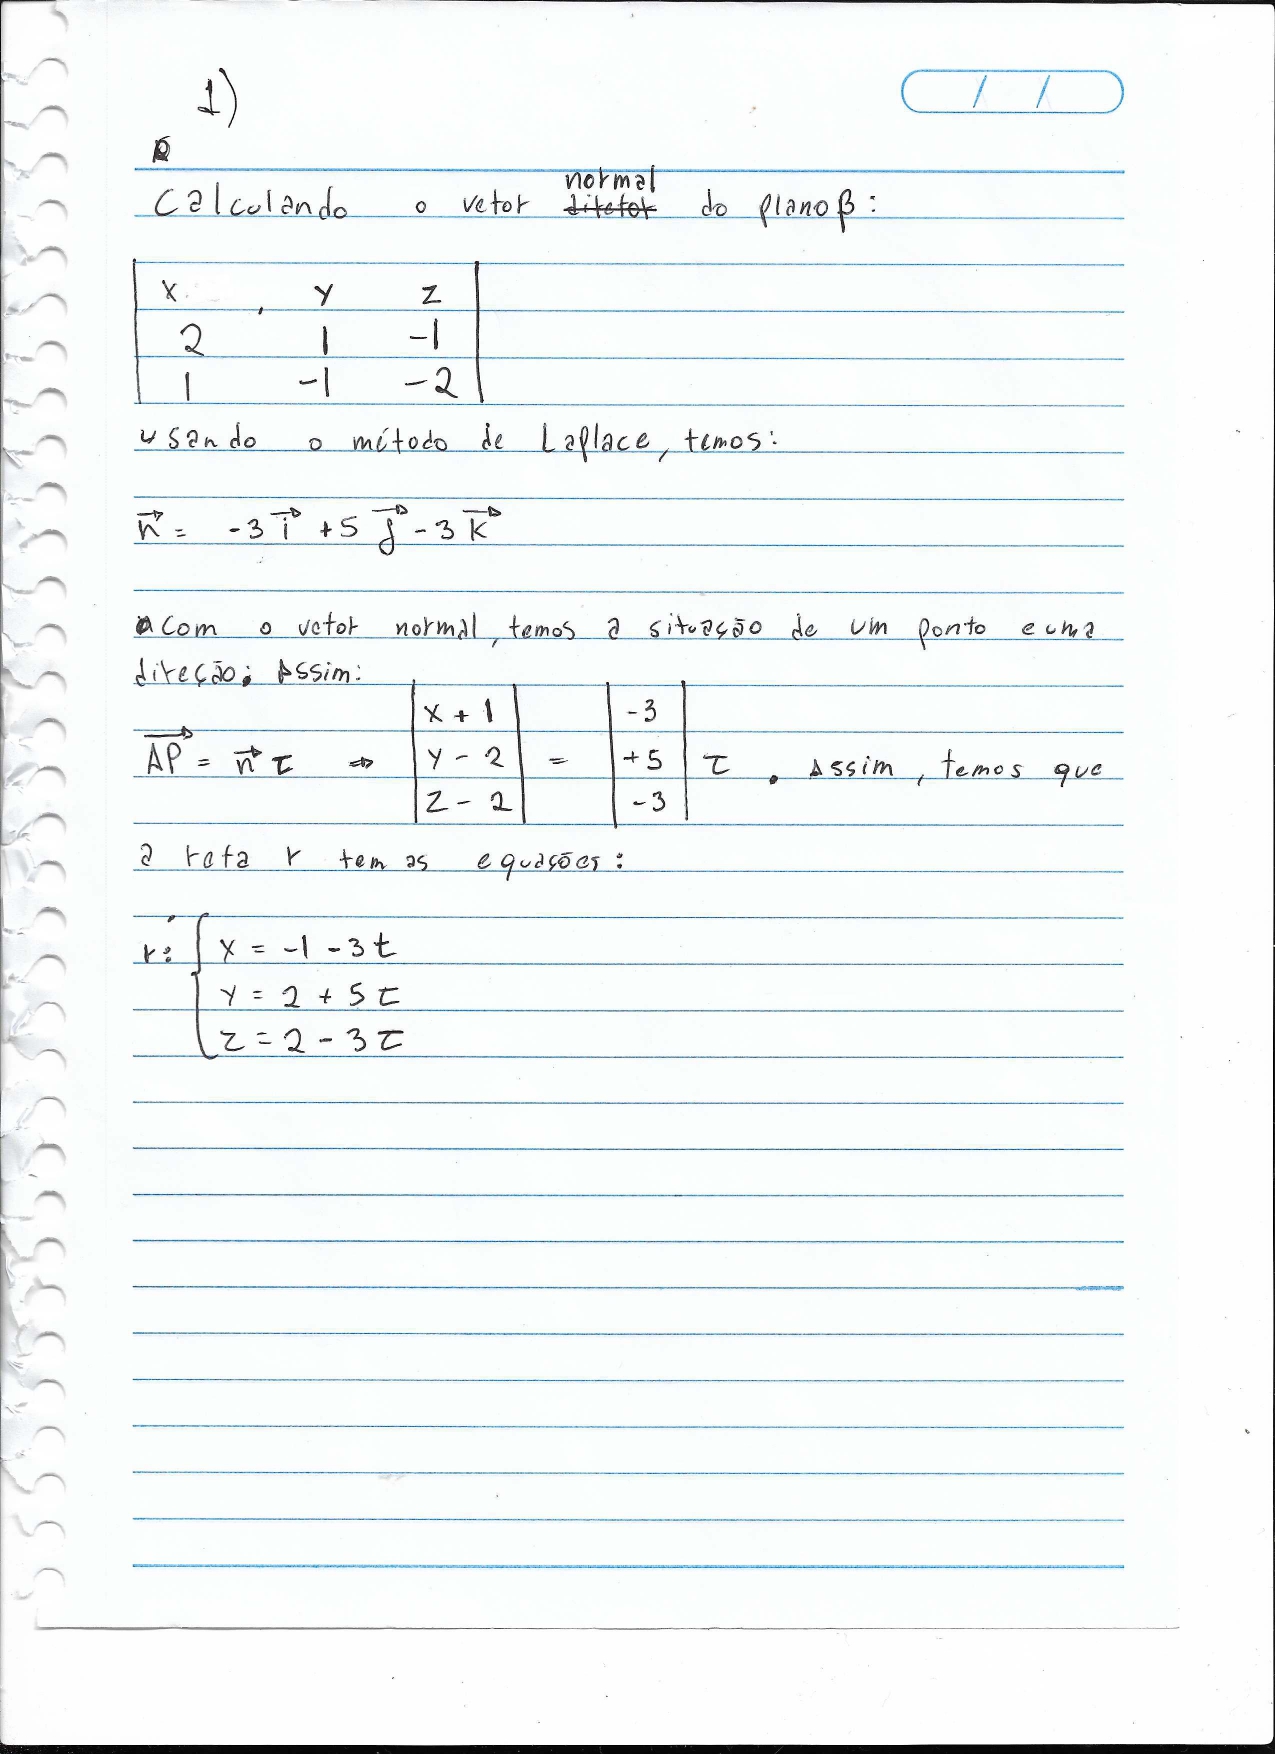 1)
Calculando o vetor normal do plano β:
x y z
2 1 -1
1 -1 -2
usando o método de Laplace, temos:
n⃗ = -3 i⃗ + 5 j⃗ - 3 k⃗
Com o vetor normal, temos a situação de um ponto e uma
direção; Assim:
AP⃗ = n⃗ t ⇒ |x + 1| = |-3|
|y - 2| |+5| t . Assim, temos que
|z - 2| |-3|
a reta r tem as equações:
r: { x = -1 - 3t
y = 2 + 5t
z = 2 - 3t